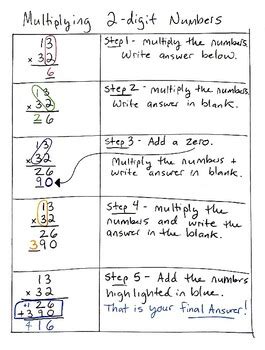 Multiplying 2-digit Numbers
13
x 32
6
Step 1 - multiply the numbers.
Write answer below.
13
x 32
26
Step 2 - multiply the numbers.
Write answer in blank.
13
x 32
26
90
Step 3 - Add a zero.
Multiply the numbers +
write answer in blank.
13
x 32
26
390
Step 4 - multiply the
numbers and write the
answer in the blank.
13
x 32
+1 26
+390
416
Step 5 - Add the numbers
highlighted in blue.
That is your final Answer!